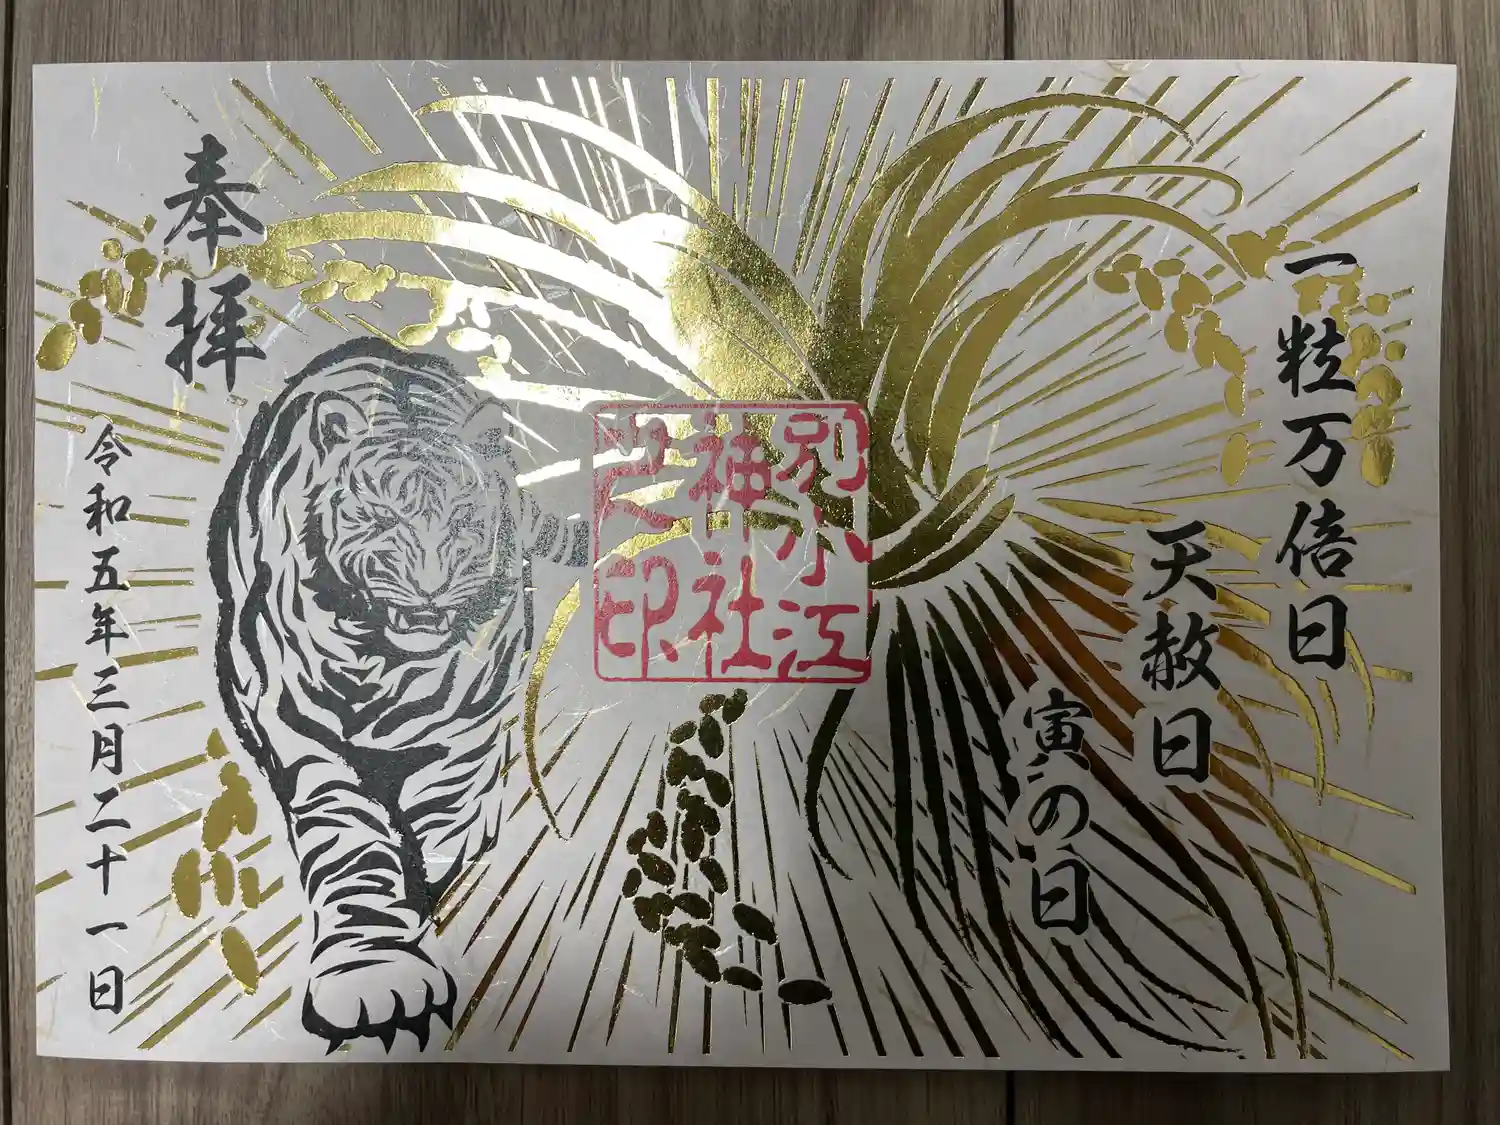 一粒万倍日
天赦日
寅の日
別小江
神社
之印
奉拝
令和五年三月二十一日